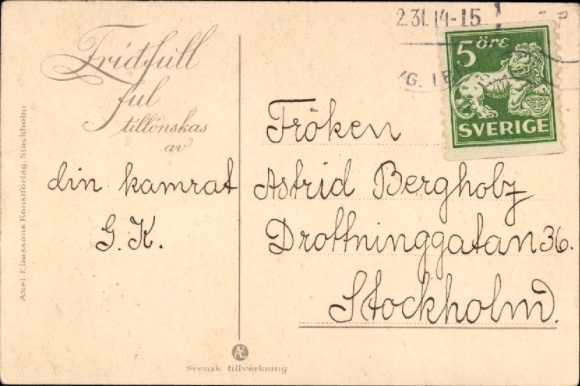 Fridfull
Jul
tillönskas
av
din kamrat
G. K.
Fröken
Astrid Bergholz
Drottninggatan 36.
Stockholm.
5 öre
SVERIGE
2.31.14-15
Axel Eliassons Konstförlag, Stockholm
Æ
Svensk tillverkning